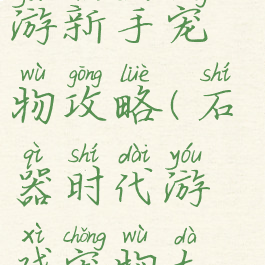 游新手宠
wù gōng lüè shí
物攻略(石
qì shí dài yóu
器时代游
xì chǒng wù dà
戏宠物大